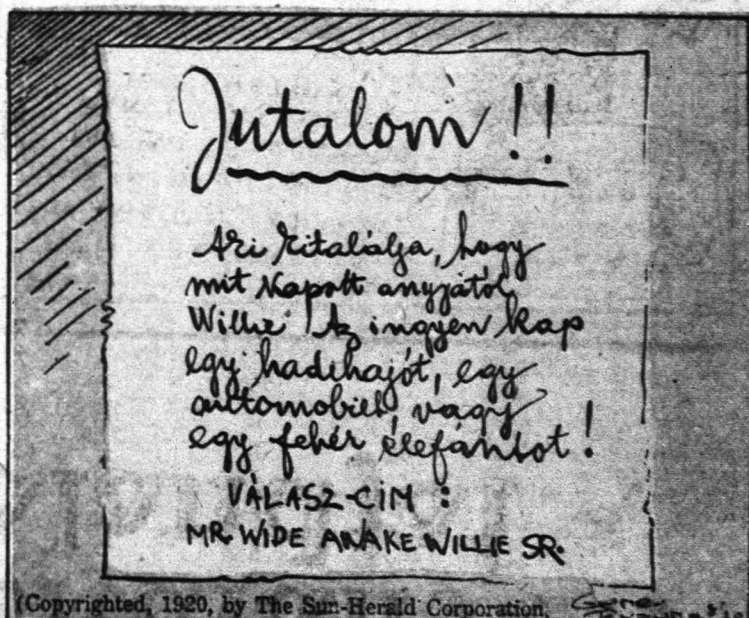 Jutalom!!
Aki kitalálja, hogy
mit kapott anyjától
Willie! Az ingyen kap
egy hadihajót, egy
automobielt, vagy
egy fehér elefántot!
VÁLASZ-CIM :
MR. WIDE AWAKE WILLIE SR.
(Copyrighted, 1920, by The Sun-Herald Corporation.